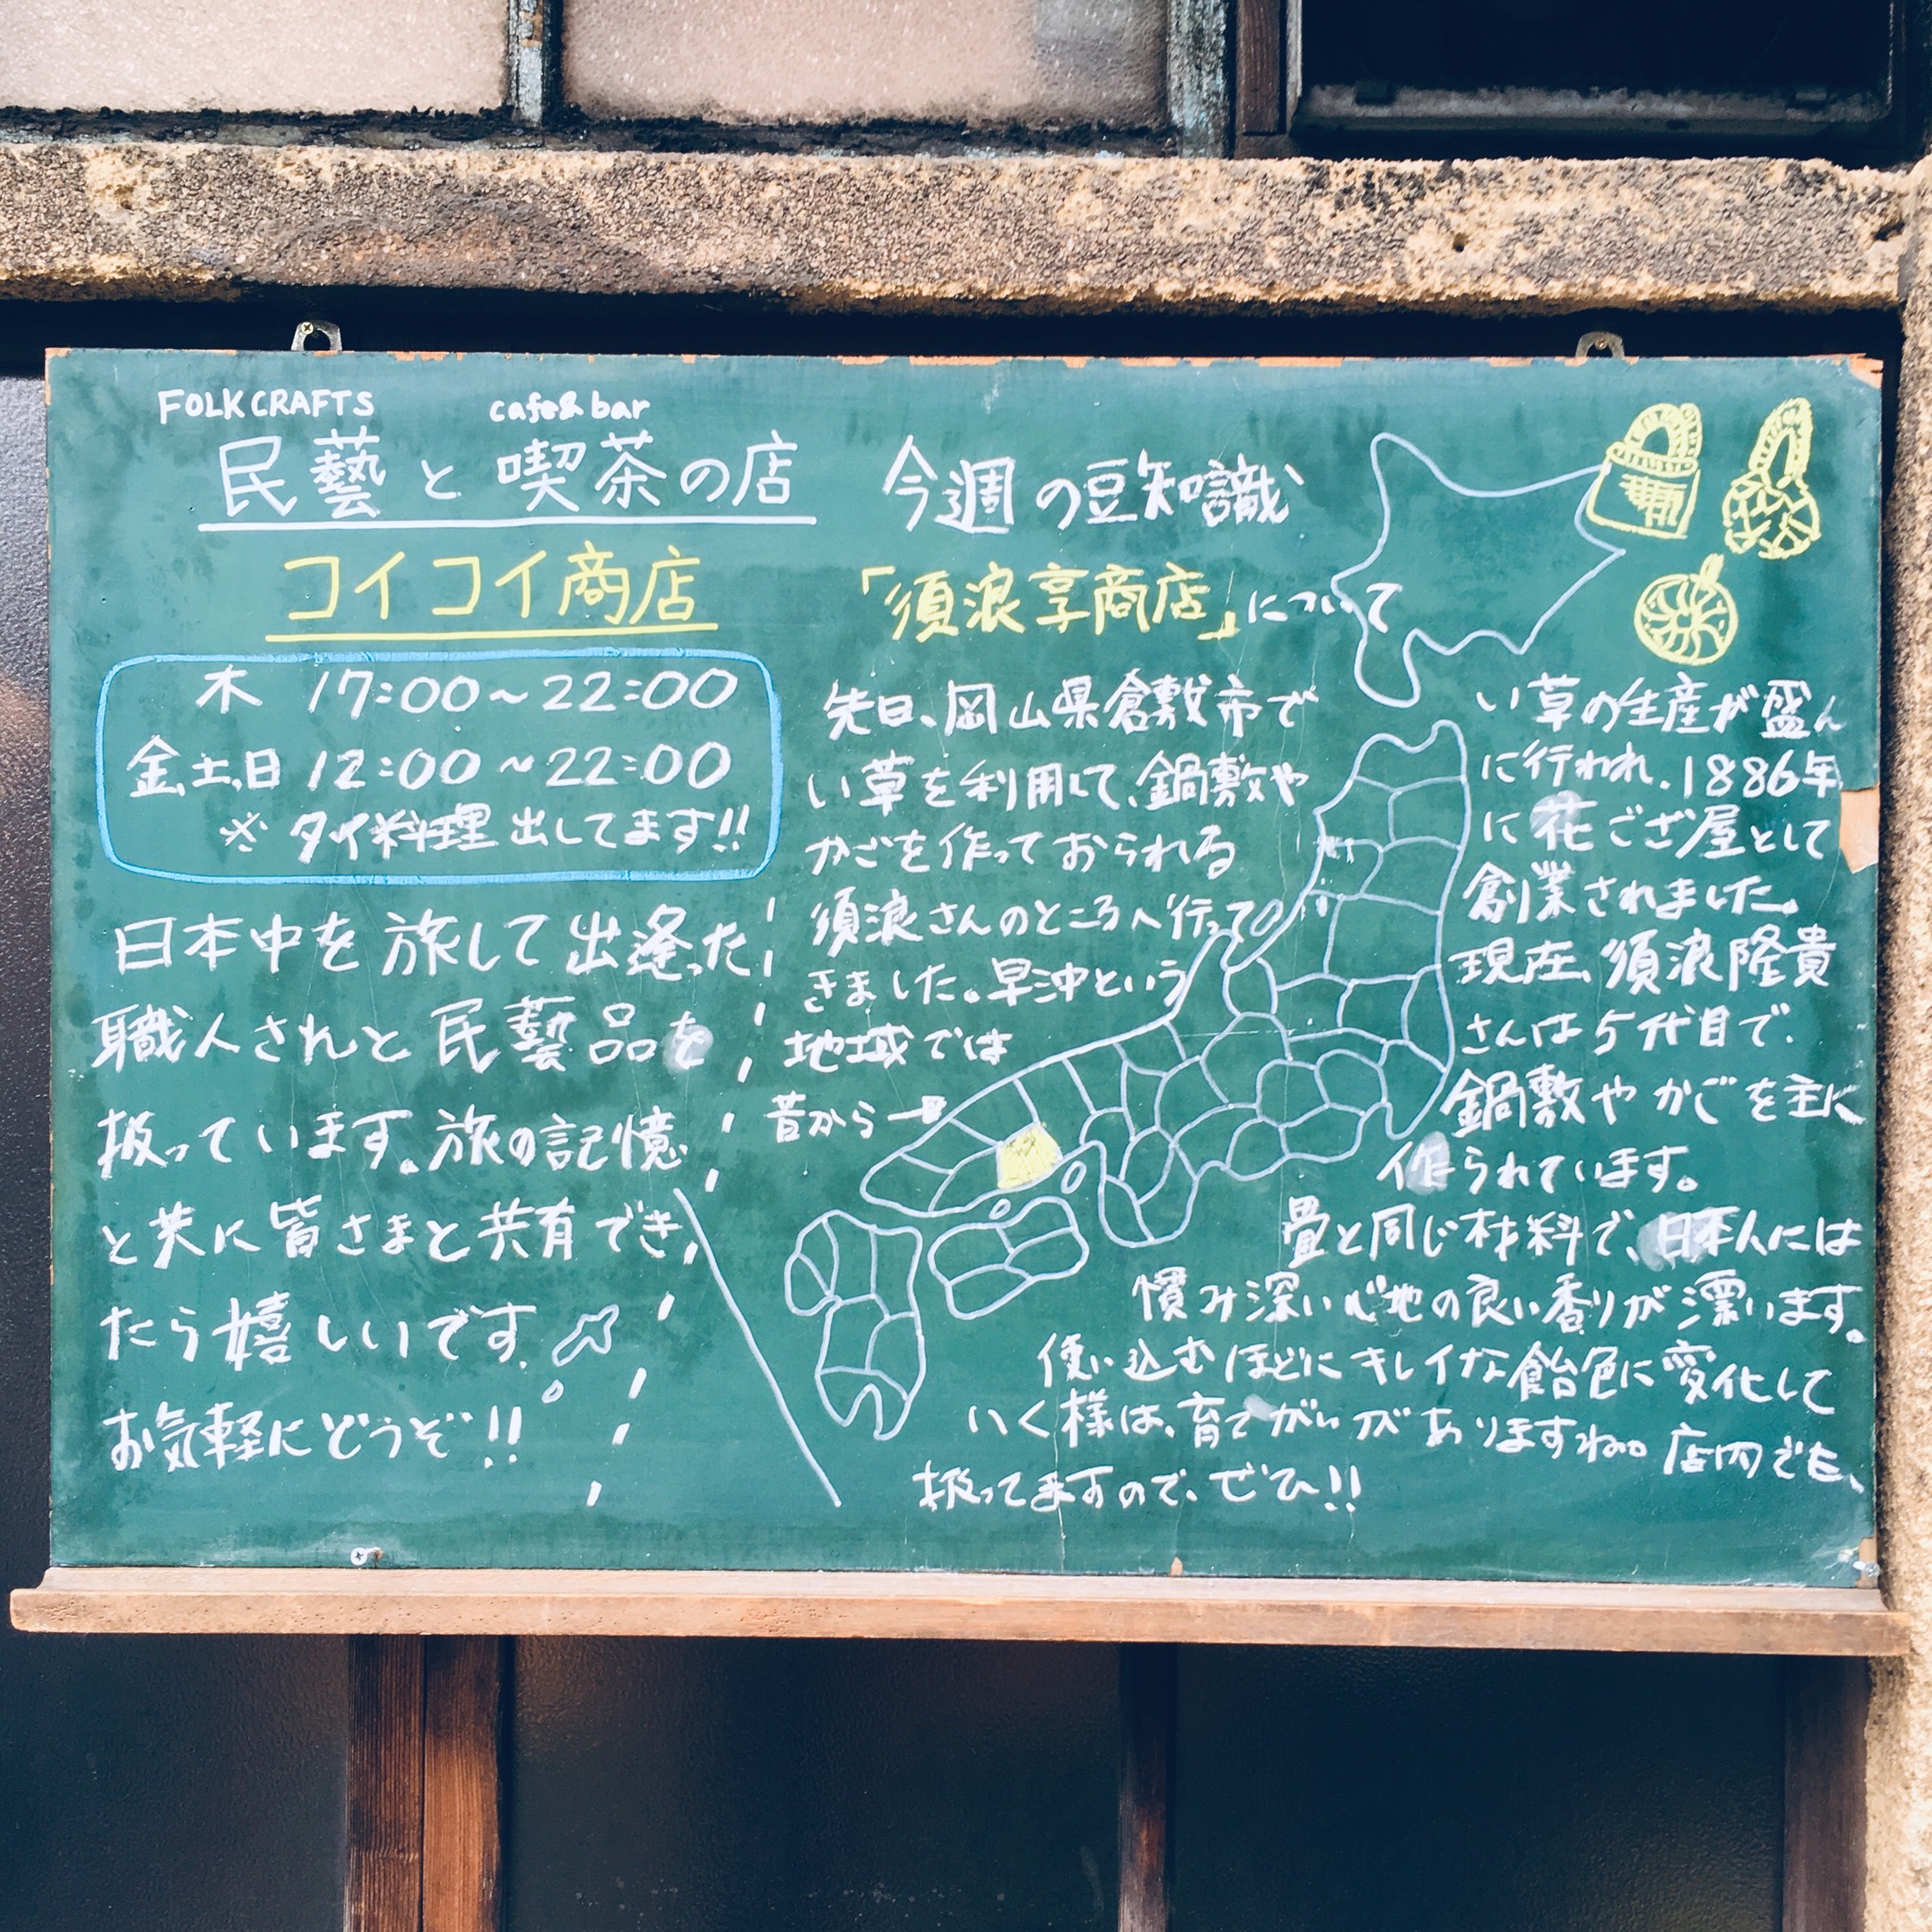 FOLK CRAFTS cafe&bar
民藝と喫茶の店
コイコイ商店
木 17:00~22:00
金,土,日 12:00~22:00
※ タイ料理出してます!!
日本中を旅して出逢った
職人されと民藝品を
扱っています。旅の記憶
と共に皆さまと共有でき
たら嬉しいです.
お気軽にどうぞ!!
今週の豆知識
「須浪亨商店」について
先日、岡山県倉敷市で
い草を利用して、鍋敷や
かごを作っておられる
須浪さんのところへ行って
きました。早沖という
地域では
昔から→
い草の生産が盛ん
に行われ、1886年
に花ござ屋として
創業されました。
現在、須浪隆貴
さんは5代目で、
鍋敷やかごを主に
作られています。
畳と同じ材料で、日本人には
慣み深い心地の良い香りが漂います。
使い込むほどにキレイな飴色に変化して
いく様は、育てがいがありますね。店内でも、
扱ってますので、ぜひ!!